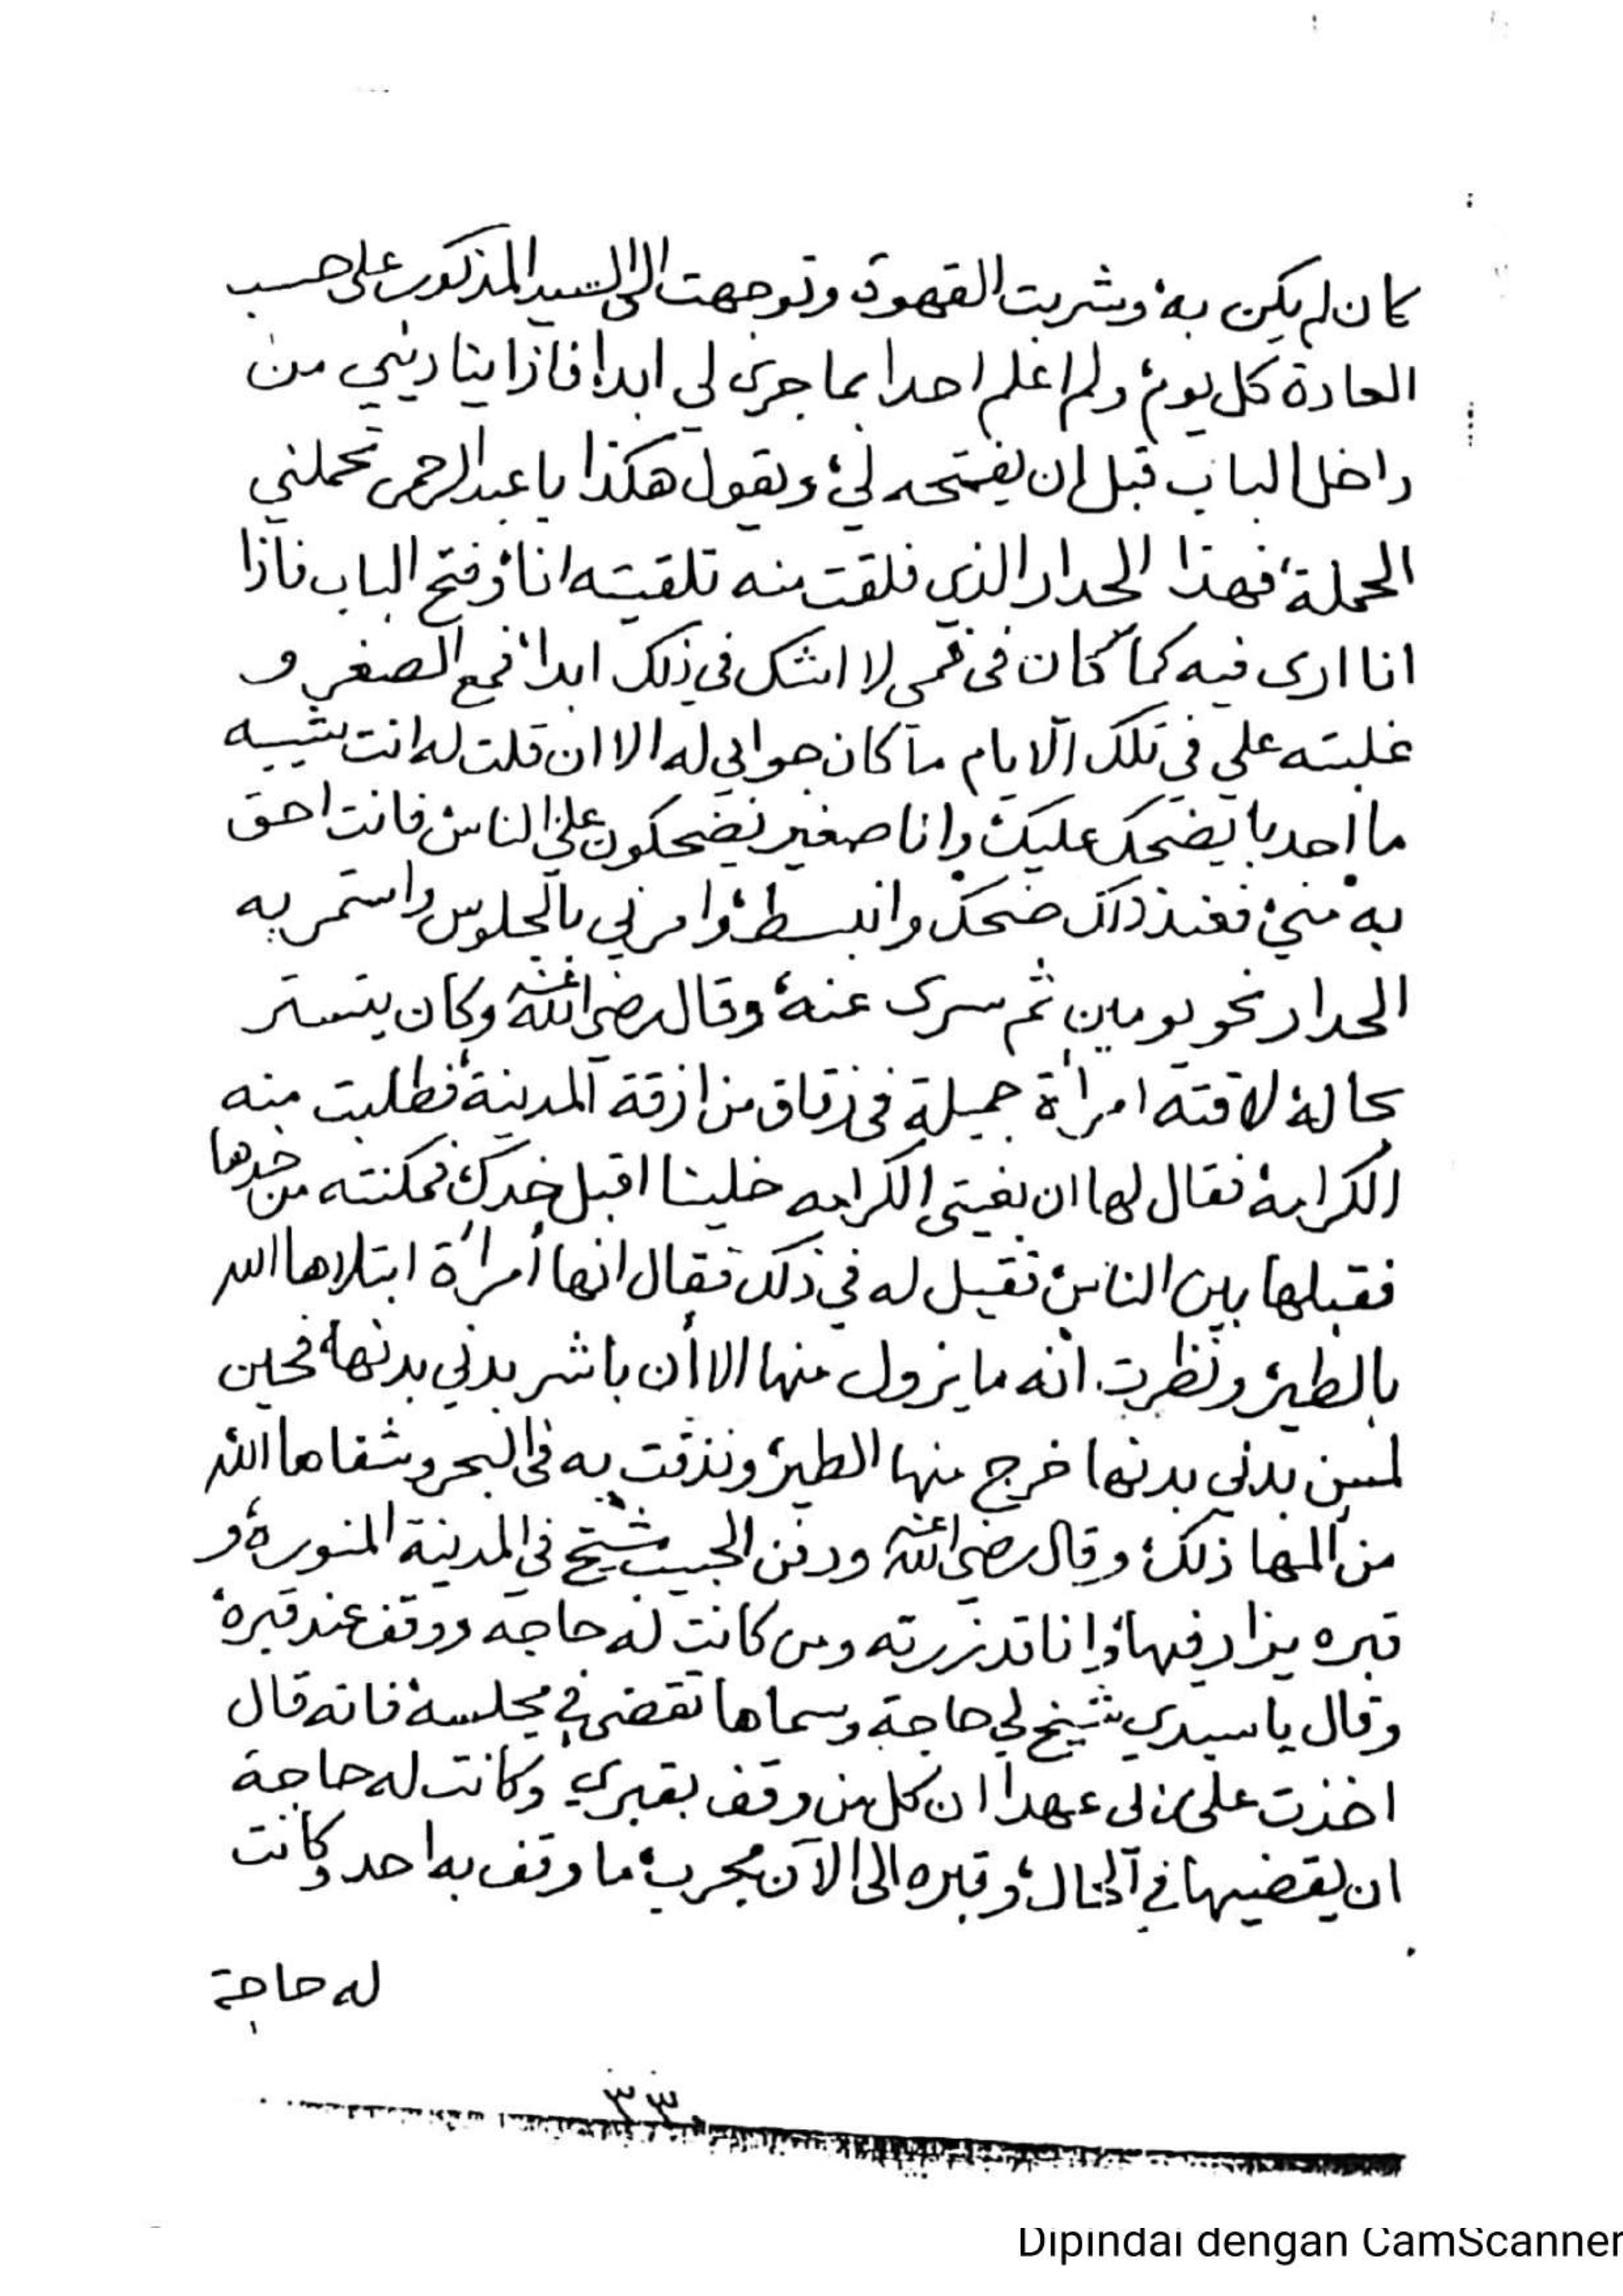 كان لم يكن به، وشربت القهوة وتوجهت الى السيد المذكور على حسب
العادة كل يوم، ولم اعلم احدا بما جرى لي ابدا، فاذا يناديني من
داخل الباب قبل ان يفتحه لي، ويقول هكذا يا عبد الرحمن تحملني
الحملة، فهذا الحدار الذي فلقت منه تلقيته انا، وفتح الباب فاذا
انا ارى فيه كما كان في فمي لا اشك في ذلك ابدا، فمع الصغر و
غلبته علي في تلك الايام ما كان جوابي له الا ان قلت له انت شيبه
ما احد با يضحك عليك، وانا صغير يضحكون علي الناس، فانت احق
به مني، فعند ذاك ضحك وانبسط، وامرني بالجلوس واستمر به
الحدار نحو يومين ثم سرى عنه، وقال رضي الله عنه وكان يتستر
بحاله، لاقته امرأة جميلة في زقاق من ازقة المدينة، فطلبت منه
الكرامة، فقال لها ان بغيتي الكرامه خلينا اقبل خدك، فمكنته من خدها
فقبلها بين الناس، فقيل له في ذلك فقال انها أمرأة ابتلاها الله
بالطير، ونظرت انه ما يزول منها الا أن باشر بدني بدنها، فحين
لمس بدني بدنها خرج منها الطير، ونذقت به في البحر وشفاها الله
من ألمها ذلك، وقال رضي الله عنه ودفن الحبيب شيخ في المدينة المنوره، و
قبره يزار فيها، وانا قد زرته ومن كانت له حاجه ووقف عند قبره،
وقال يا سيدي شيخ لي حاجة وسماها تقضى في مجلسه، فانه قال
اخذت على ربي عهدا ان كل من وقف بقبري، وكانت له حاجة
ان يقضيها في الحال، وقبره الى الآن مجرب، ما وقف به احد وكانت
له حاجة
٣٣
Dipindai dengan CamScanner